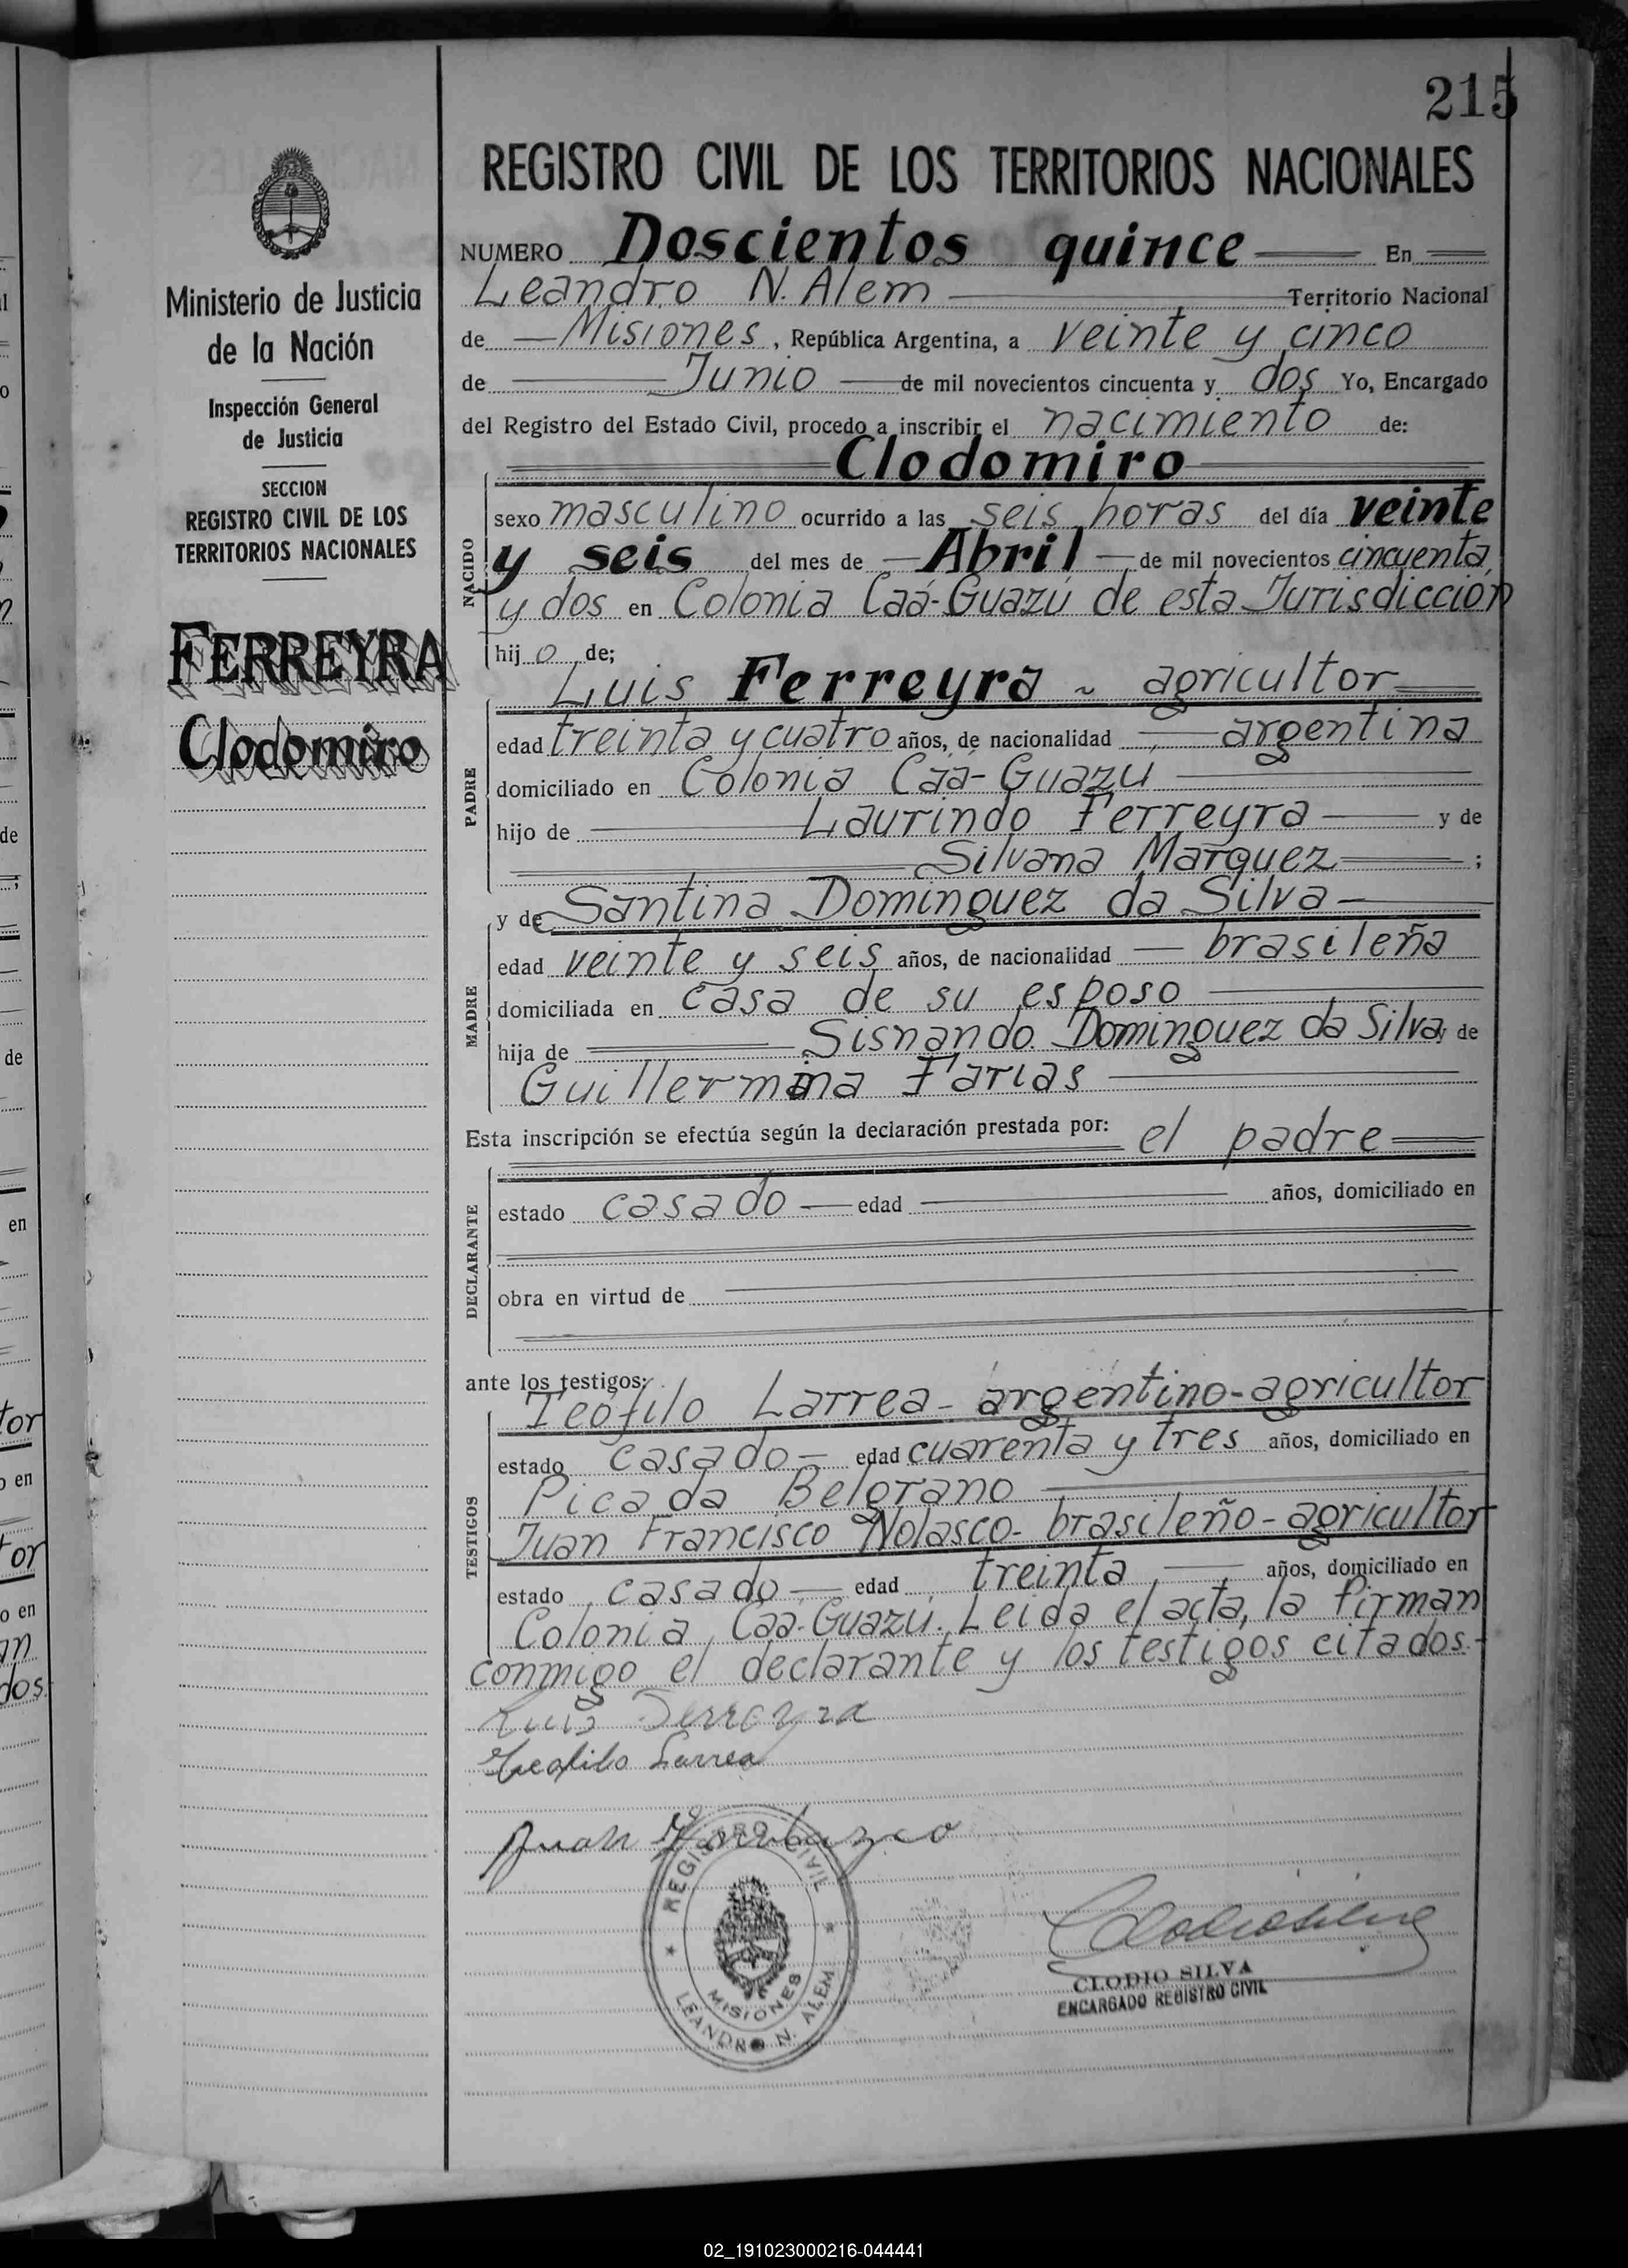 215
REGISTRO CIVIL DE LOS TERRITORIOS NACIONALES
Ministerio de Justicia
de la Nación
Inspección General
de Justicia
SECCION
REGISTRO CIVIL DE LOS
TERRITORIOS NACIONALES
FERREYRA
Clodomiro
NUMERO Doscientos quince En
Leandro N. Alem Territorio Nacional
de Misiones, República Argentina, a veinte y cinco
de Junio de mil novecientos cincuenta y dos Yo, Encargado
del Registro del Estado Civil, procedo a inscribir el nacimiento de:
Clodomiro
NACIDO
sexo masculino ocurrido a las seis horas del día veinte
y seis del mes de Abril de mil novecientos cincuenta
y dos en Colonia Caá-Guazú de esta Jurisdicción
hijo de;
Luis Ferreyra ~ agricultor
PADRE
edad treinta y cuatro años, de nacionalidad argentina
domiciliado en Colonia Caá-Guazú
hijo de Laurindo Ferreyra y de
Silvana Marquez ;
y de Santina Dominguez da Silva -
MADRE
edad veinte y seis años, de nacionalidad brasileña
domiciliada en casa de su esposo
hija de Sisnando Dominguez da Silva y de
Guillermina Farias
Esta inscripción se efectúa según la declaración prestada por: el padre
DECLARANTE
estado casado edad años, domiciliado en
obra en virtud de
ante los testigos:
Teófilo Larrea - argentino - agricultor
TESTIGOS
estado casado - edad cuarenta y tres años, domiciliado en
Picada Belgrano
Juan Francisco Nolasco - brasileño - agricultor
estado casado edad treinta años, domiciliado en
Colonia Caá-Guazú. Leida el acta, la firman
conmigo el declarante y los testigos citados.-
Luis Ferreyra
Teofilo Larrea
Juan
REGISTRO CIVIL
MISIONES
LEANDRO N. ALEM
CLODIO SILVA
ENCARGADO REGISTRO CIVIL
02_191023000216-044441